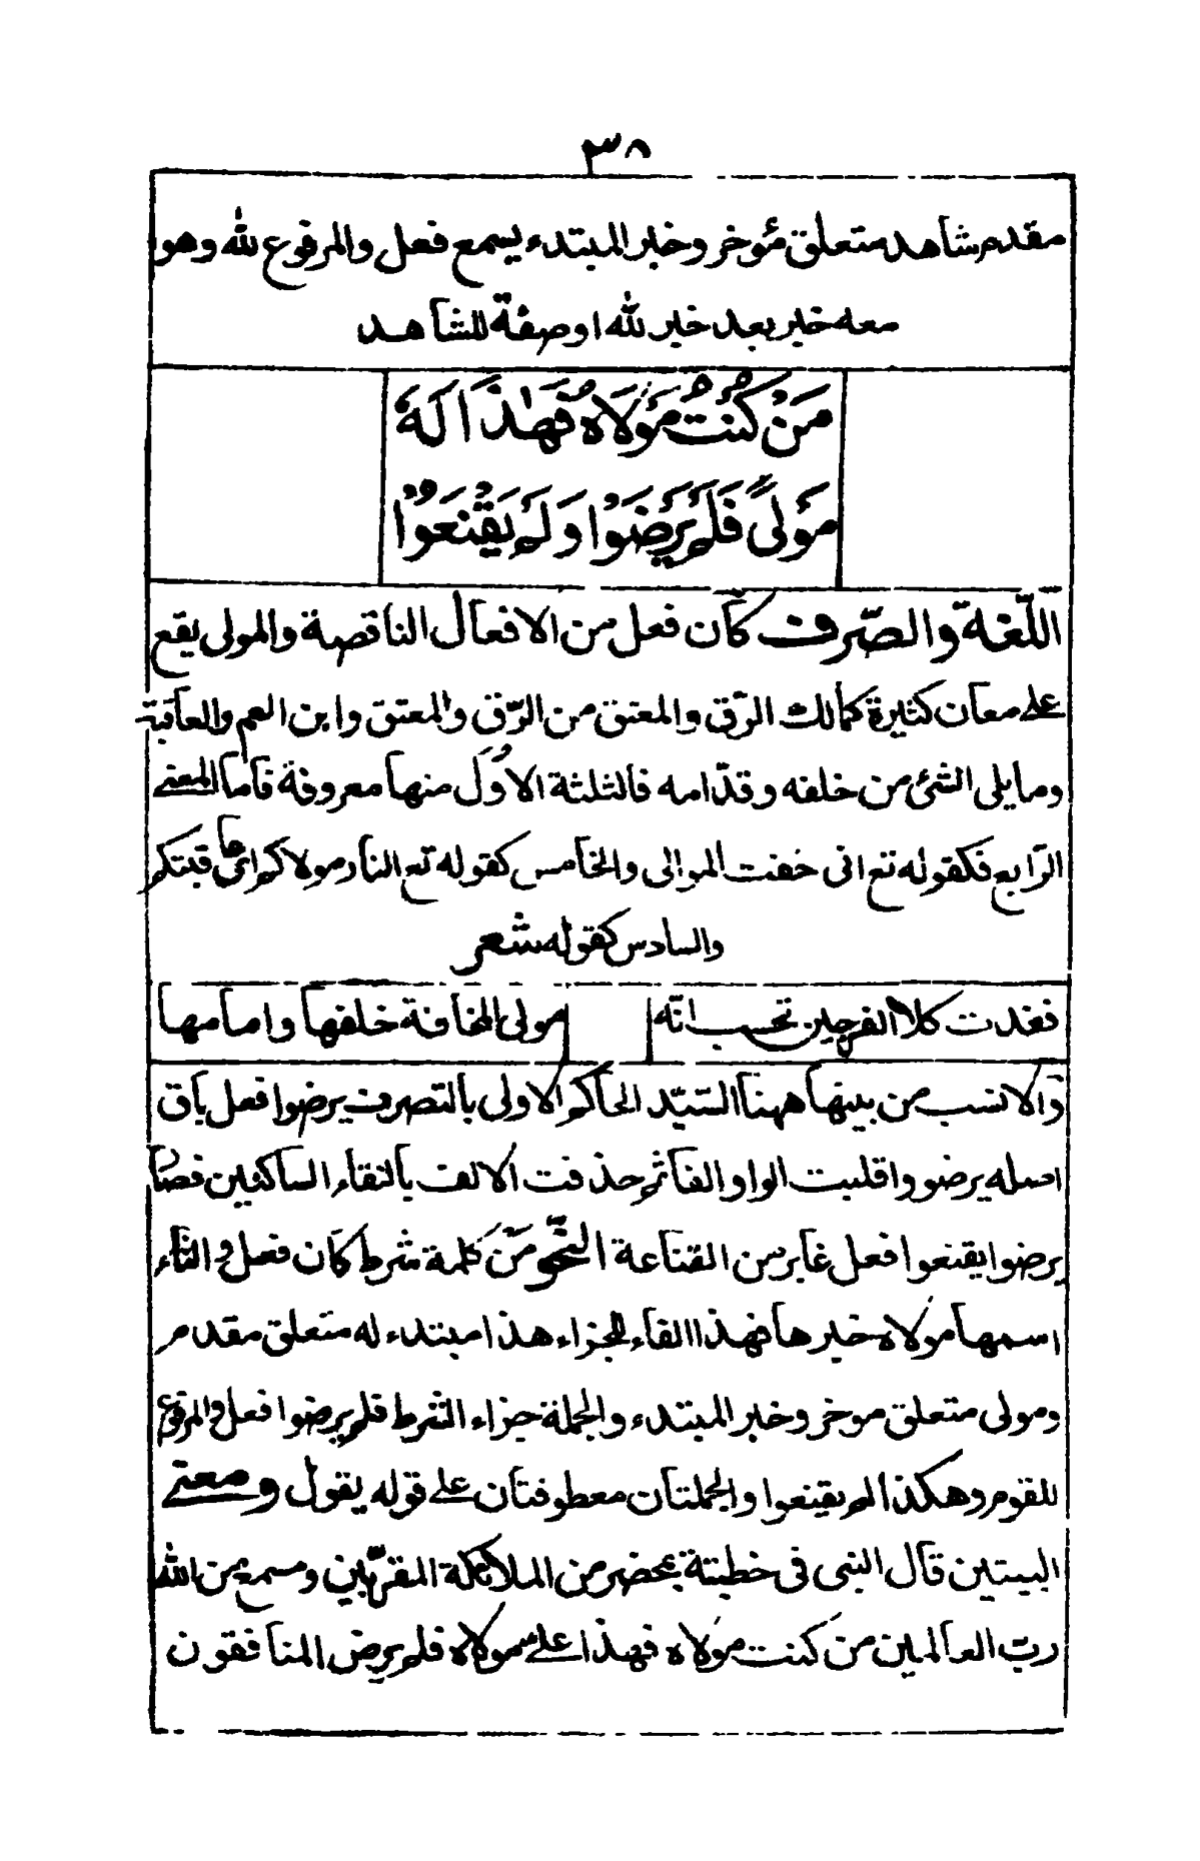 ٣٨
مقدم شاهد متعلق مؤخر وخبر المبتدء يسمع فعل والمرفوع لله وهو
معه خبر بعد خبر لله اوصفة للشاهد
مَنْ كُنْتُ مَوْلَاهُ فَهٰذَا لَهُ
مَوْلىً فَلَمْ يَرْضَوْا وَلَمْ يَقْنَعُوْا
اللّغة والصّرف كان فعل من الافعال الناقصة والمولى يقع
على معان كثيرة كمالك الرّق والمعتق من الرّق والمعتق وابن العم والعاقبة
وما يلى الشئ من خلفه وقدّامه فالثلثة الاُوَل منها معروفة فاما المعنى
الرّابع فكقوله تع انى خفت الموالى والخامس كقوله تع النار مولاكم اى عاقبتكم
والسادس كقوله شعر
فغدت كلا الفرجين تحسب انّه مولى المخافة خلفها وامامها
والانسب من بينها ههنا السّيّد الحاكم الاولى بالتصرف يرضوا فعل باق
اصله يرضووا قلبت الواو الفا ثم حذفت الالف بالتقاء الساكنين فصار
يرضوا يقنعوا فعل غابر من القناعة النّحو مَنْ كلمة شرط كان فعل والتاء
اسمها مولاه خبرها فهذا الفاء للجزاء هذا مبتدء له متعلق مقدم
ومولى متعلق موخر وخبر المبتدء والجملة جزاء الشرط فلم يرضوا فعل والمرفوع
للقوم وهكذا لم يقنعوا والجملتان معطوفتان على قوله يقول ومعنى
البيتين قال النبى فى خطبته بمحضر من الملائكة المقرّبين ومسمع من الله
ربّ العالمين من كنت مولاه فهذا على مولاه فلم يرض المنافقون